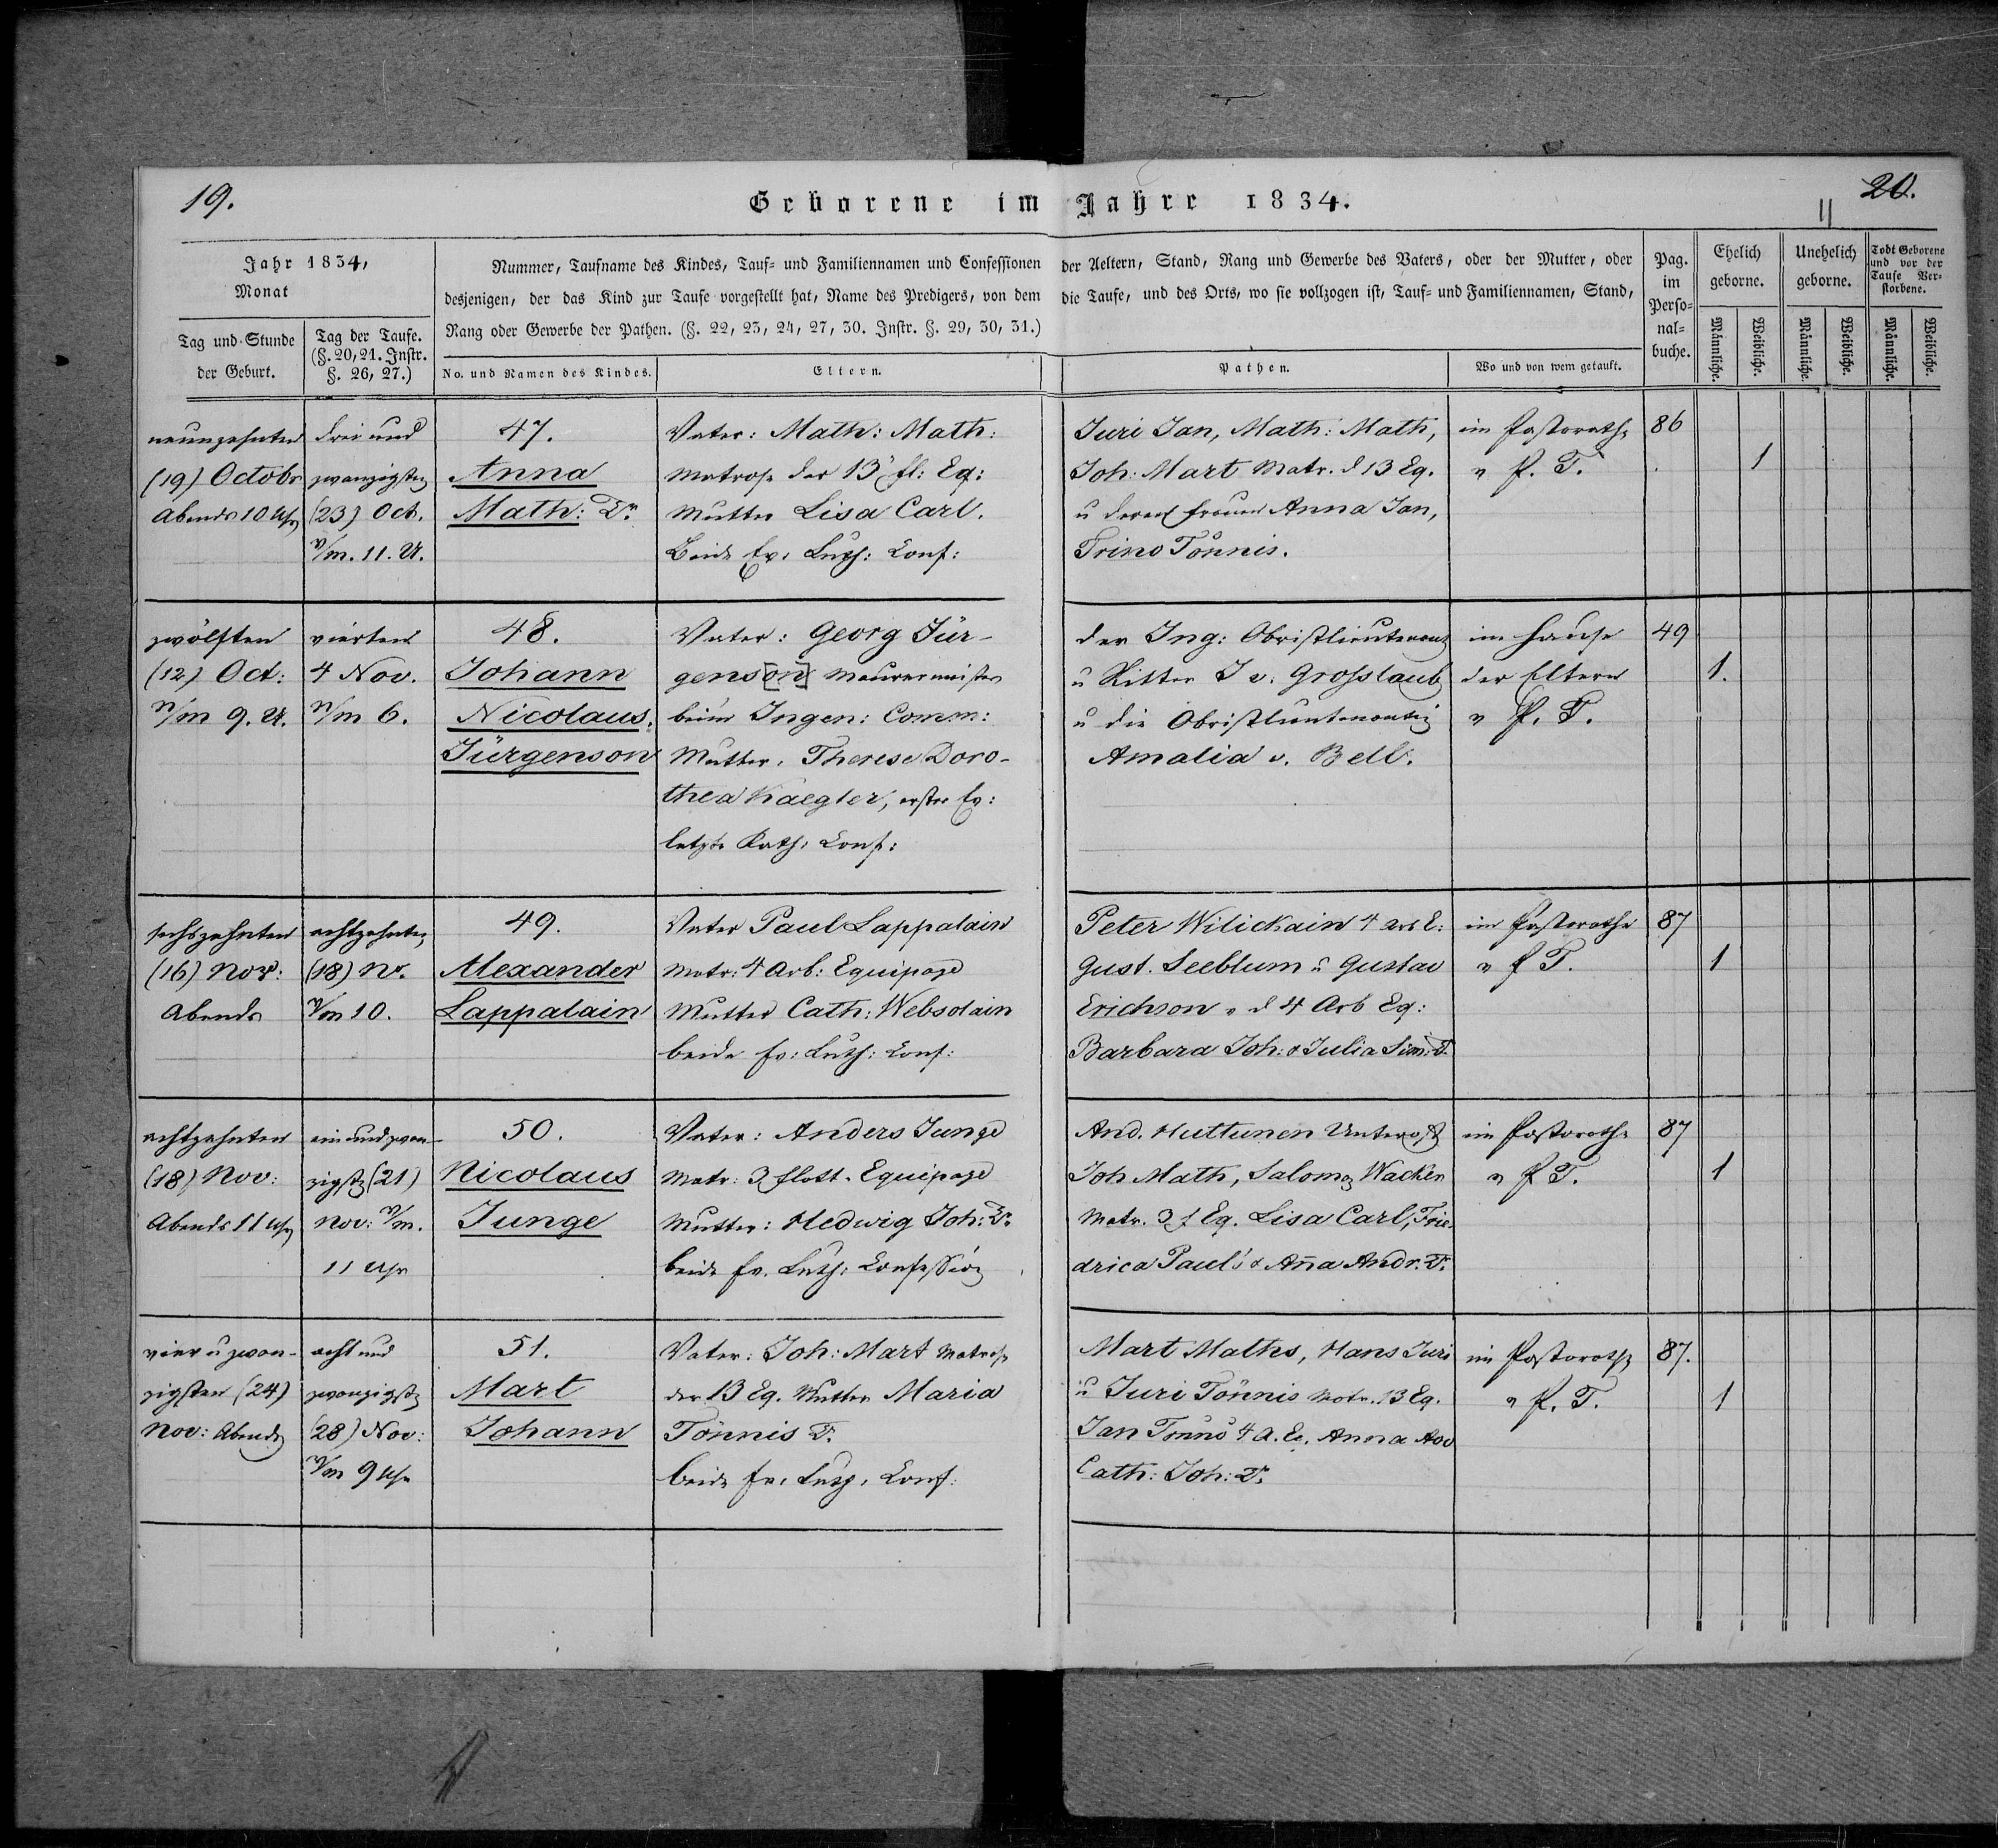 19.
Geborene im Jahre 1834.
20.
11
Jahr 1834,
Monat
Tag und Stunde
der Geburt.
Tag der Taufe.
(§. 20, 21. Instr.
§. 26, 27.)
Nummer, Taufname des Kindes, Tauf- und Familiennamen und Confessionen der Aeltern, Stand, Rang und Gewerbe des Vaters, oder der Mutter, oder
desjenigen, der das Kind zur Taufe vorgestellt hat, Name des Predigers, von dem die Taufe, und des Orts, wo sie vollzogen ist, Tauf- und Familiennamen, Stand,
Rang oder Gewerbe der Pathen. (§. 22, 23, 24, 27, 30. Instr. §. 29, 30, 31.)
No. und Namen des Kindes.
Eltern.
Pathen.
Wo und von wem getauft.
Pag.
im
Perso-
nal-
buche.
Ehelich
geborne.
Unehelich
geborne.
Todt Geborene
und vor der
Taufe Ver-
storbene.
Männliche.
Weibliche.
Männliche.
Weibliche.
Männliche.
Weibliche.
neunzehnten
(19) Octobr
Abends 10 Uhr
drei und
zwanzigsten
(23) Oct.
V/m. 11. U.
47.
Anna
Math: Tr.
Vater: Math: Math:
Matrose der 13 fl: Eq:
Mutter Lisa Carl.
Beide Ev: Luth: Conf:
Juri Jan, Math: Math,
Joh: Mart Matr. d 13 Eq.
u deren Frauen Anna Jan,
Trino Tönnis.
im Pastorathe
v P. T.
86
1
zwölften
(12) Oct:
n/m 9. U.
vierten
4 Nov.
n/m 6.
48.
Johann
Nicolaus.
Jürgenson
Vater: Georg Jür-
gens[on] Maurermeister
beim Ingen: Comm:
Mutter, Therese Doro-
thea Kaegler, erster Ev:
letzte Kath: Conf:
der Ing: Obristlieutenant
u Ritter J v. Grosslaub
u die Obristlieutenantin
Amalia v. Bell.
im Hause
der Eltern
v P. T.
49
1.
sechszehnten
(16) Nov:
Abends
achtzehnten
(18) Nv.
V/m 10.
49.
Alexander
Lappalain
Vater Paul Lappalain
Matr: 4 Arb: Equipage
Mutter Cath: Websolain
beide Ev: Luth: Conf:
Peter Wilickain 4 Arb E:
Gust. Seeblum u Gustav
Erichson v d 4 Arb Eq:
Barbara Joh: & Julia Sim: T.
im Pastorathe
v P T.
87
1
achtzehnten
(18) Nov:
Abends 11 Uhr
ein und zwan-
zigsten (21)
Nov: V/m.
11 Uhr
50.
Nicolaus
Junge
Vater: Anders Junge
Matr: 3 flott. Equipage
Mutter: Hedwig Joh: Tr.
beide Ev. Luth: Confession
And. Huttunen Unteroff
Joh Math, Salomo Wacken
Matr. 3 f Eq. Lisa Carl, Frie
drica Paul's & Anna Andr. Tr.
im Pastorathe
v P T.
87
1
vier u zwan-
zigsten (24)
Nov: Abends
acht und
zwanzigsten
(28) Nov:
V/m 9 Uhr
51.
Mart
Johann
Vater: Joh: Mart Matrose
der 13 Eq. Mutter Maria
Tönnis T.
beide Ev. Luth. Conf:
Mart Maths, Hans Juri
u Juri Tönnis Matr. 13 Eq.
Jan Tönno 4 A. Eq. Anna
Cath: Joh: Tr.
im Pastorathe
v P. T.
87.
1